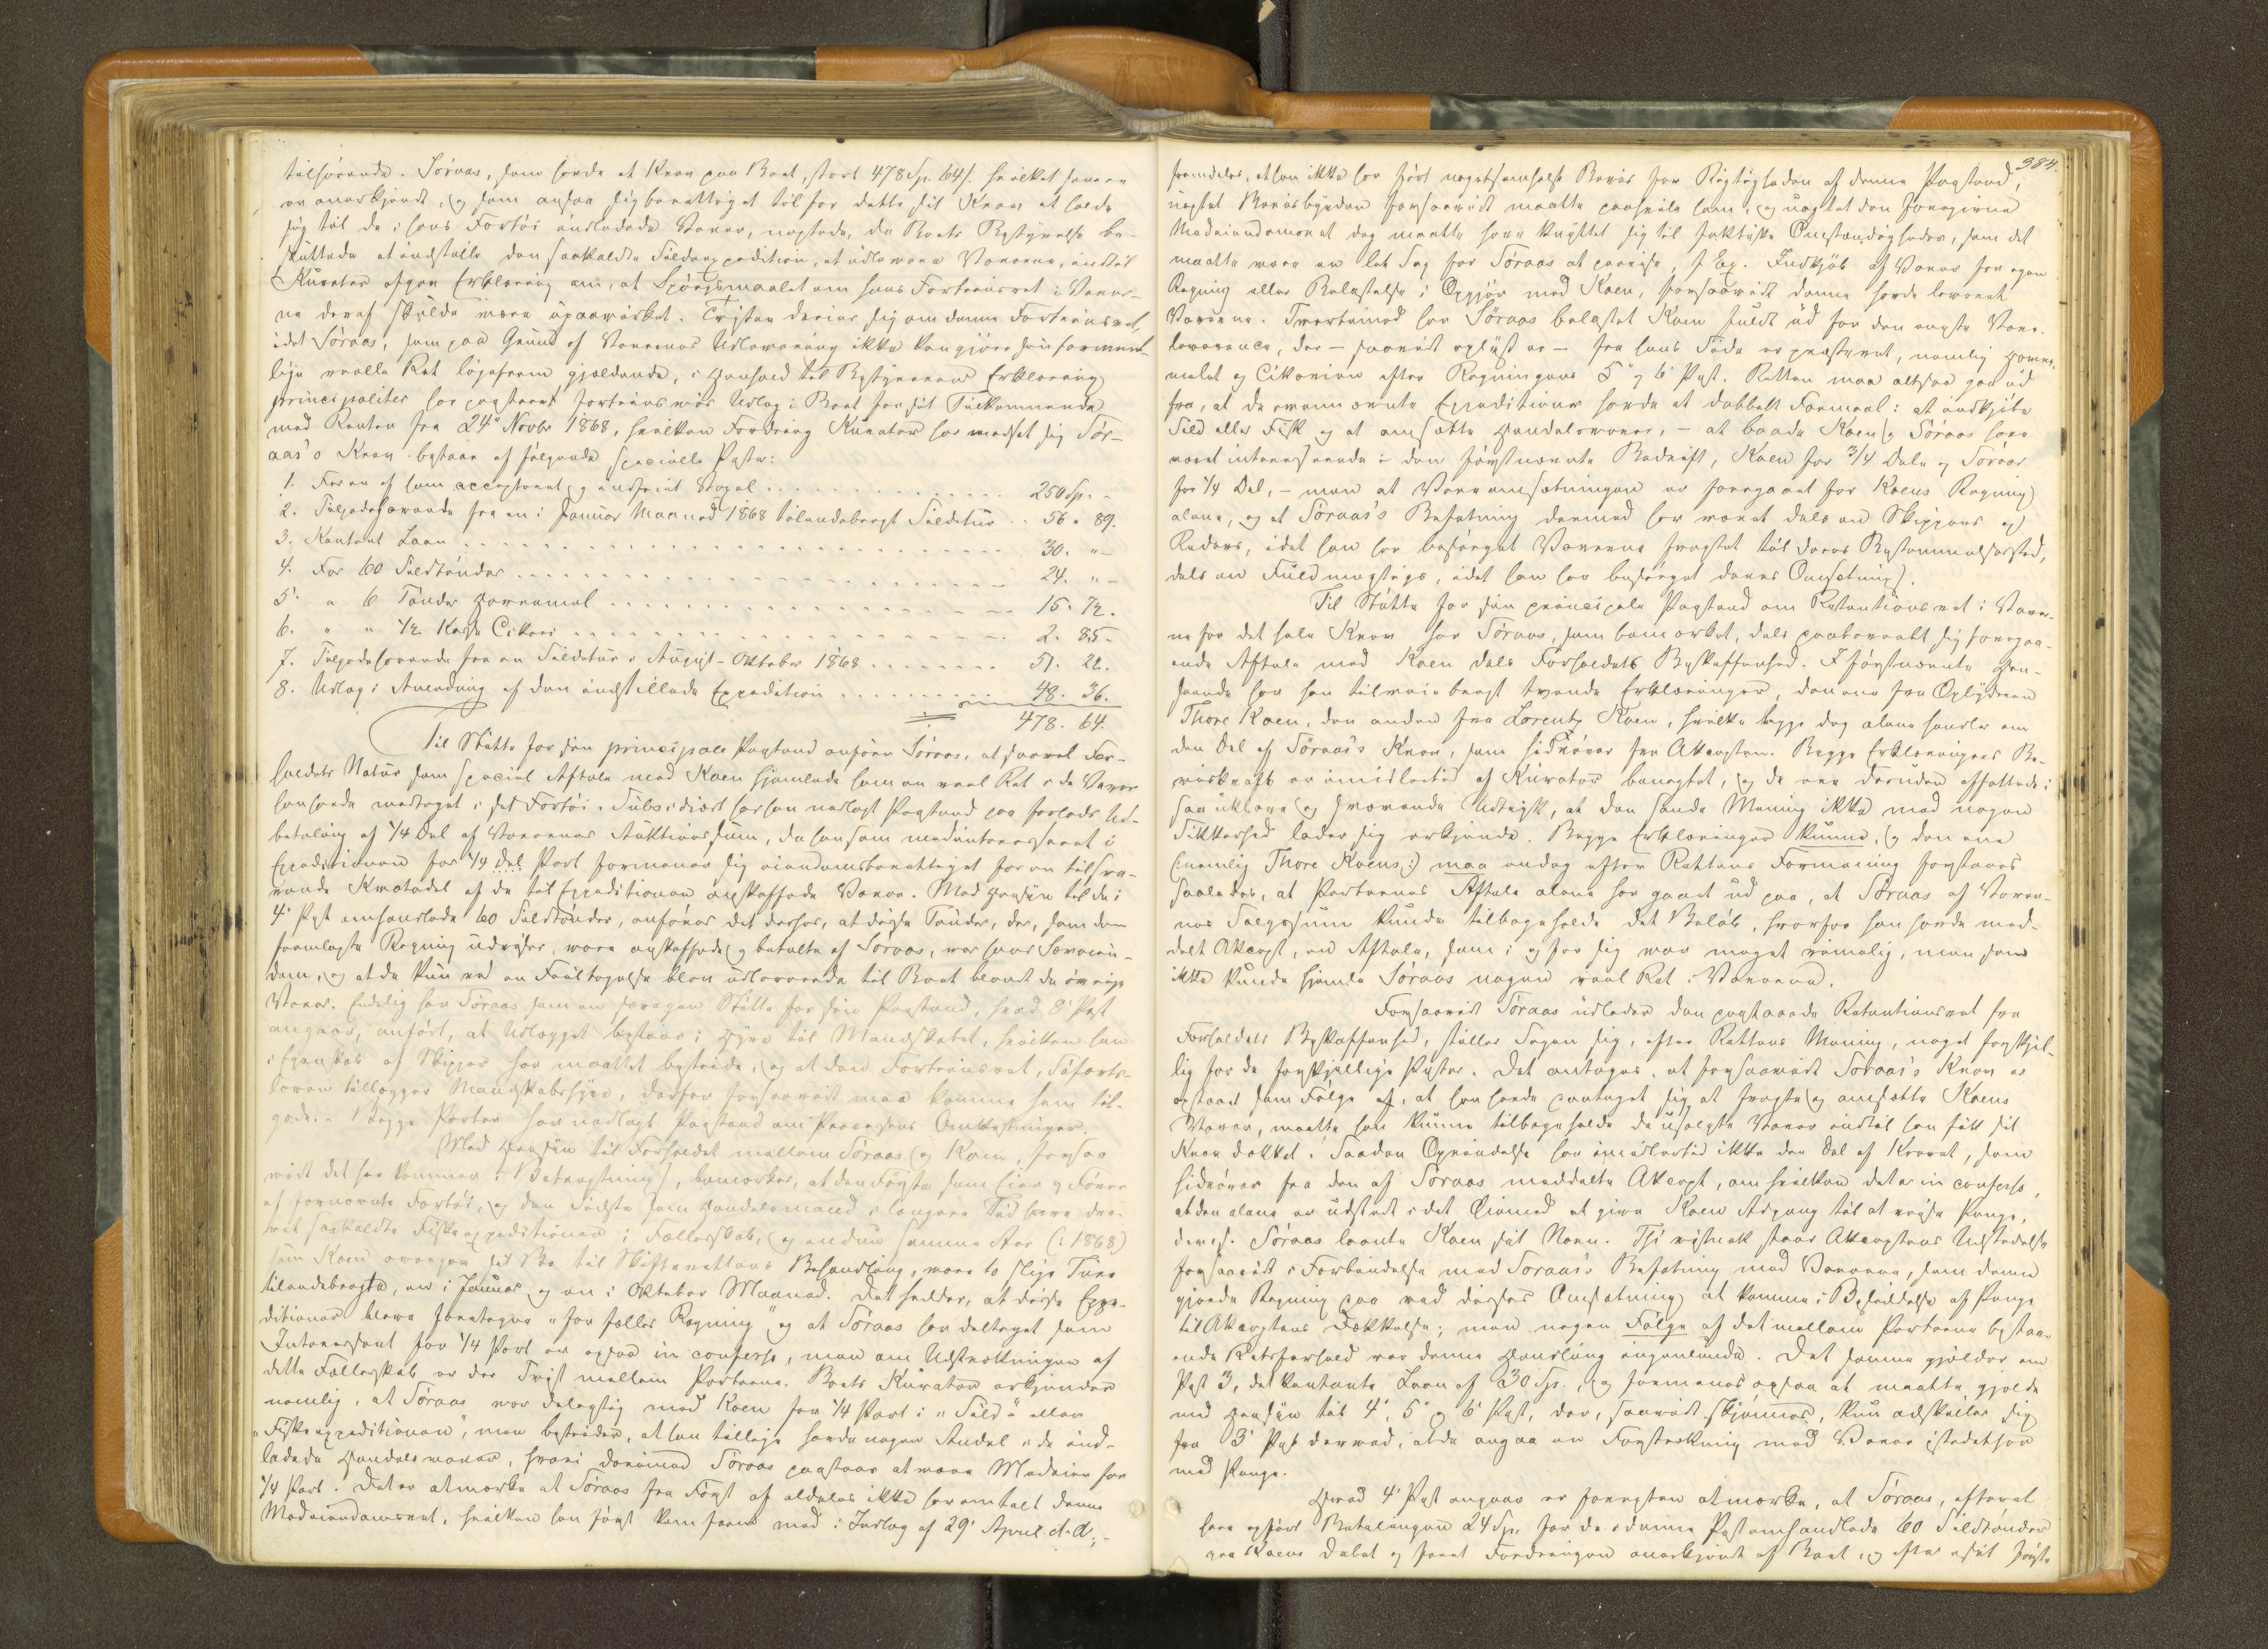 tilhørende. Søraas, som havde et Krav paa Boet, stort 478 Sp. 64 s. hvilket senere
er anerkjendt, og som ansaa sig berettiget til for dette sit Krav at holde
sig til de i hans Fartøi indladede Varer, negtede, da Boets Bestyrelse be-
sluttede at indstille den saakaldte Sildeexpedition, at udlevere Varerne, indtil
Kurator afgav Erklæring om, at Spørgsmaalet om hans Fortrinsret i Varer-
ne deraf skulde være upaavirket. Tvisten dreier sig om denne Fortrinsret,
idet Søraas, som paa Grund af Varernes Udlevering ikke kan gjøre sin forment-
lige reelle Ret ligefrem gjældende, i Henhold til Bestyrerens Erklæring
principaliter har paastaaet fortrinsvis Udlæg i Boet for sit Tilkommende
med Renter fra 24de Novbr 1868, hvilken Fordring Kurator har modsat sig. Sør-
aas's Krav bestaar af følgende specielle Poster:
1. For en af ham accepteret og indfriet Vexel . . . 250 Sp. -
2. Tilgodehavende fra en i Januar Maaned 1868 tilendebragt Sildetur . . 56 " 89.
3. Kontant Laan . . . 30. " -
4. For 60 Sildtønder . . . 24. " -
5. " 6 Tønder Havremel . . . 15. 72.
6. " " 1/2 Kasse Cikori . . . 2. 85.
7. Tilgodehavende fra en Sildetur i August-Oktober 1868 . . . 51. 22.
8. Udlæg i Anledning af den indstillede Expedition . . . 48. 36.
478. 64.
Til Støtte for sin principale Paastand anfører Søraas, at saavel For-
holdets Natur som speciel Aftale med Koen hjemlede ham en reel Ret i de Varer
han havde modtaget i sit Fartøi. Subsidiært har han nedlagt Paastand paa forlods Ud-
betaling af 1/4 Del af Varernes Auktionssum, da han som medinteresseret i
Expeditionen for 1/4 Del Part formener sig eiendomsberettiget for en tilsva-
rende Kvotadel af de til Expeditionen anskaffede Varer. Med Hensyn til de i
4de Post omhandlede 60 Sildtønder, anføres det derhos, at disse Tønder, der, som den
fremlagte Regning udviser, vare anskaffede og betalte af Søraas, var hans Særeien-
dom, og at de kun ved en Feiltagelse bleve udleverede til Boet blandt de øvrige
Varer. Endelig har Søraas som en særegen Støtte for sin Paastand, hvad 8de Post
angaar, anført, at Udlægget bestaar i Hyre til Mandskabet, hvilken han
i Egenskab af Skipper har maattet bestride, og at den Fortrinsret, Søfarts-
loven tillægger Mandskabshyre, derfor forsaavidt maa komme ham til-
gode. - Begge Parter har nedlagt Paastand om Processens Omkostninger.
Med Hensyn til Forholdet mellem Søraas og Koen, forsaa-
vidt det her kommer i Betragtning, bemærkes, at den Første som Eier og Fører
af fornævnte Fartøi, og den Sidste som Handelsmand i længere Tid have dre-
vet saakaldte Fiskeexpeditioner i Fællesskab, og endnu samme Aar (: 1868)
som Koen overgav sit Bo til Skifterettens Behandling, vare to slige Ture
tilendebragte, en i Januar og en i Oktober Maaned. Det hedder, at disse Expe-
ditioner bleve foretagne "for fælles Regning" og at Søraas har deltaget som
Interessent for 1/4 Part er ogsaa in confesso, men om Udstrækningen af
dette Fællesskab er der Tvist mellem Parterne. Boets Kurator erkjender
nemlig, at Søraas var delagtig med Koen for 1/4 Part i "Silde" eller
"Fiskeexpeditionen", men bestrider, at han tillige havde nogen Andel i de ind-
ladede Handelsvarer, hvori derimod Søraas paastaar at være Medeier for
1/4 Part. Det er at mærke at Søraas fra Først af aldeles ikke har omtalt denne
Medeiendomsret, hvilken han først kom frem med i Indlæg af 29de April d. A., -
384.
fremdeles, at han ikke har ført nogetsomhelst Bevis for Rigtigheden af denne Paastand,
uagtet Bevisbyrden forsaavidt maatte paahvile ham, og uagtet den foregivne
Medeiendomsret dog maatte have knyttet sig til faktiske Omstændigheder, som det
maatte være en let Sag for Søraas at paavise, f. Ex. Indkjøb af Varer for egen
Regning eller Belastelse i Opgjør med Koen, forsaavidt denne havde leveret
Varerne. Tvertimod har Søraas belastet Koen fuldt ud for den eneste Vare-
leverance, der - saavidt oplyst er - fra hans Side er præsteret, nemlig Havre-
melet og Cikorien efter Regningens 5te og 6te Post. Retten maa altsaa gaa ud
fra, at de omnævnte Expeditioner havde et dobbelt Formaal: at indkjøbe
Sild eller Fisk og at omsætte Handelsvarer, - at baade Koen og Søraas have
været interesserede i den førstnævnte Bedrift, Koen for 3/4 Dele og Søraas
for 1/4 Del, - men at Vareomsætningen er foregaaet for Koens Regning
alene, og at Søraas's Befatning dermed har været dels en Skippers og
Reders, idet han har besørget Varerne fragtet til deres Bestemmelsessted,
dels en Fuldmægtigs, idet han har besørget deres Omsætning.
Til Støtte for sin principale Paastand om Retentionsret i Varer-
ne for det hele Krav har Søraas, som bemærket, dels paaberaabt sig foregaa-
ende Aftale med Koen dels Forholdets Beskaffenhed. I førstnævnte Hen-
seende har han tilveiebragt tvende Erklæringer, den ene fra Opbyderen
Thore Koen, den anden fra Lorentz Koen, hvilke begge dog alene handler om
den Del af Søraas's Krav, som hidrører fra Akcepten. Begge Erklæringers Be-
viskraft er imidlertid af Kurator benegtet, og de ere desuden affattede i
saa uklare og svævende Udtryk, at den sande Mening ikke med nogen
Sikkerhed lader sig erkjende. Begge Erklæringer kunne, og den ene
(:nemlig Thore Koens:) maa endog efter Rettens Formening forstaaes
saaledes, at Parternes Aftale alene har gaaet ud paa, at Søraas af Varer-
nes Salgssum kunde tilbageholde det Beløb, hvorfor han havde med-
delt Akcept, en Aftale, som i og for sig var meget rimelig, men som
ikke kunde hjemle Søraas nogen reel Ret i Varerne.
Forsaavidt Søraas udleder den paastaaede Retentionsret fra
Forholdets Beskaffenhed, stiller Sagen sig, efter Rettens Mening, noget forskjel-
lig for de forskjellige Poster. Det antages, at forsaavidt Søraas's Krav er
opstaaet som Følge af, at han havde paataget sig at fragte og omsætte Koens
Varer, maatte han kunne tilbageholde de usolgte Varer indtil han fik sit
Krav dækket. Saadan Oprindelse har imidlertid ikke den Del af Kravet, som
hidrører fra den af Søraas meddelte Akcept, om hvilken det er in confesso,
at den alene er udstedt i det Øiemed at give Koen Adgang til at reise Penge,
d.v.s. Søraas laante Koen sit Navn. Thi vistnok staar Akceptens Udstedelse
forsaavidt i Forbindelse med Søraas's Befatning med Varerne, som denne
gjorde Regning paa ved disses Omsætning at komme i Besiddelse af Penge
til Akceptens Dækkelse; men nogen Følge af det mellem Parterne bestaa-
ende Retsforhold var denne Handling ingenlunde. Det samme gjælder om
Post 3, det kontante Laan af 30 Sp., og formenes ogsaa at maatte gjælde
med Hensyn til 4de, 5te og 6te Post, der, saavidt skjønnes, kun adskiller sig
fra 3de Post derved, at de angaa en Forstrækning med Varer istedetfor
med Penge.
Hvad 4de Post angaar er forresten at mærke, at Søraas, efterat
have opført Betalingen 24 Sp. for de i denne Post omhandlede 60 Sildtønder
paa Koens Debet og faaet Fordringen anerkjendt af Boet, og efter i sit første